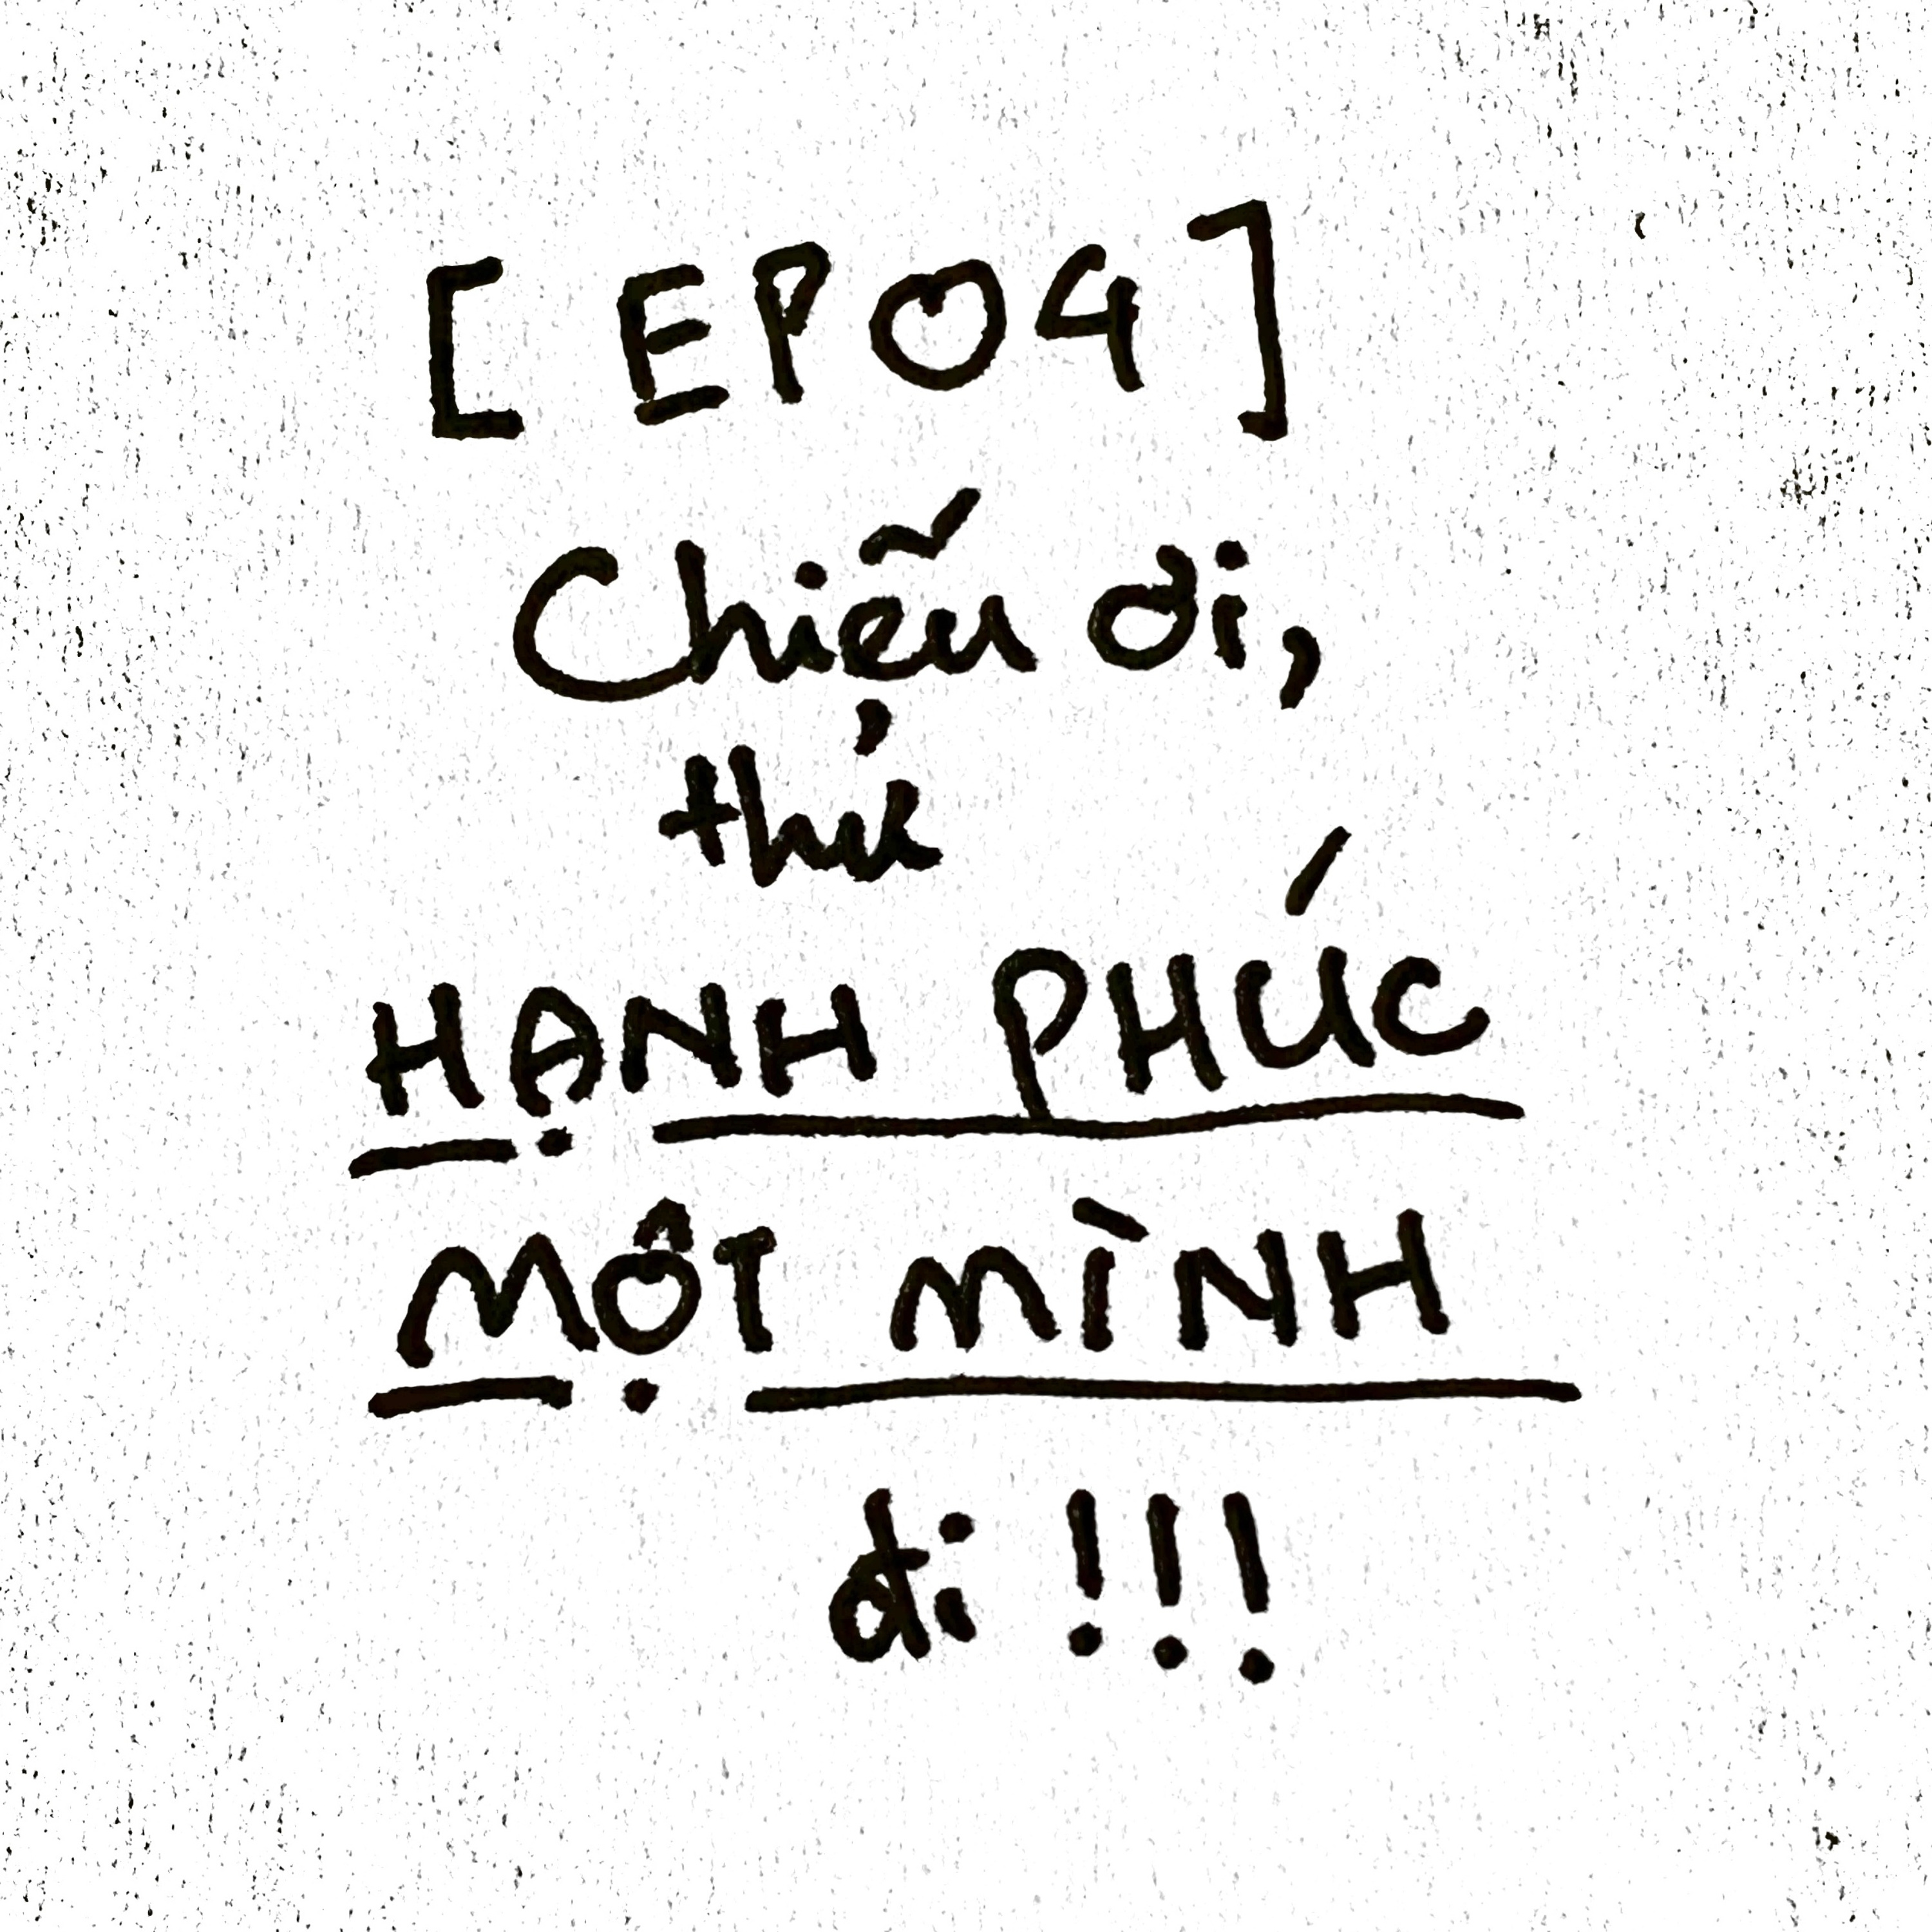 [EP04]
Chiếu ơi,
thử
HẠNH PHÚC
MỘT MÌNH
đi !!!